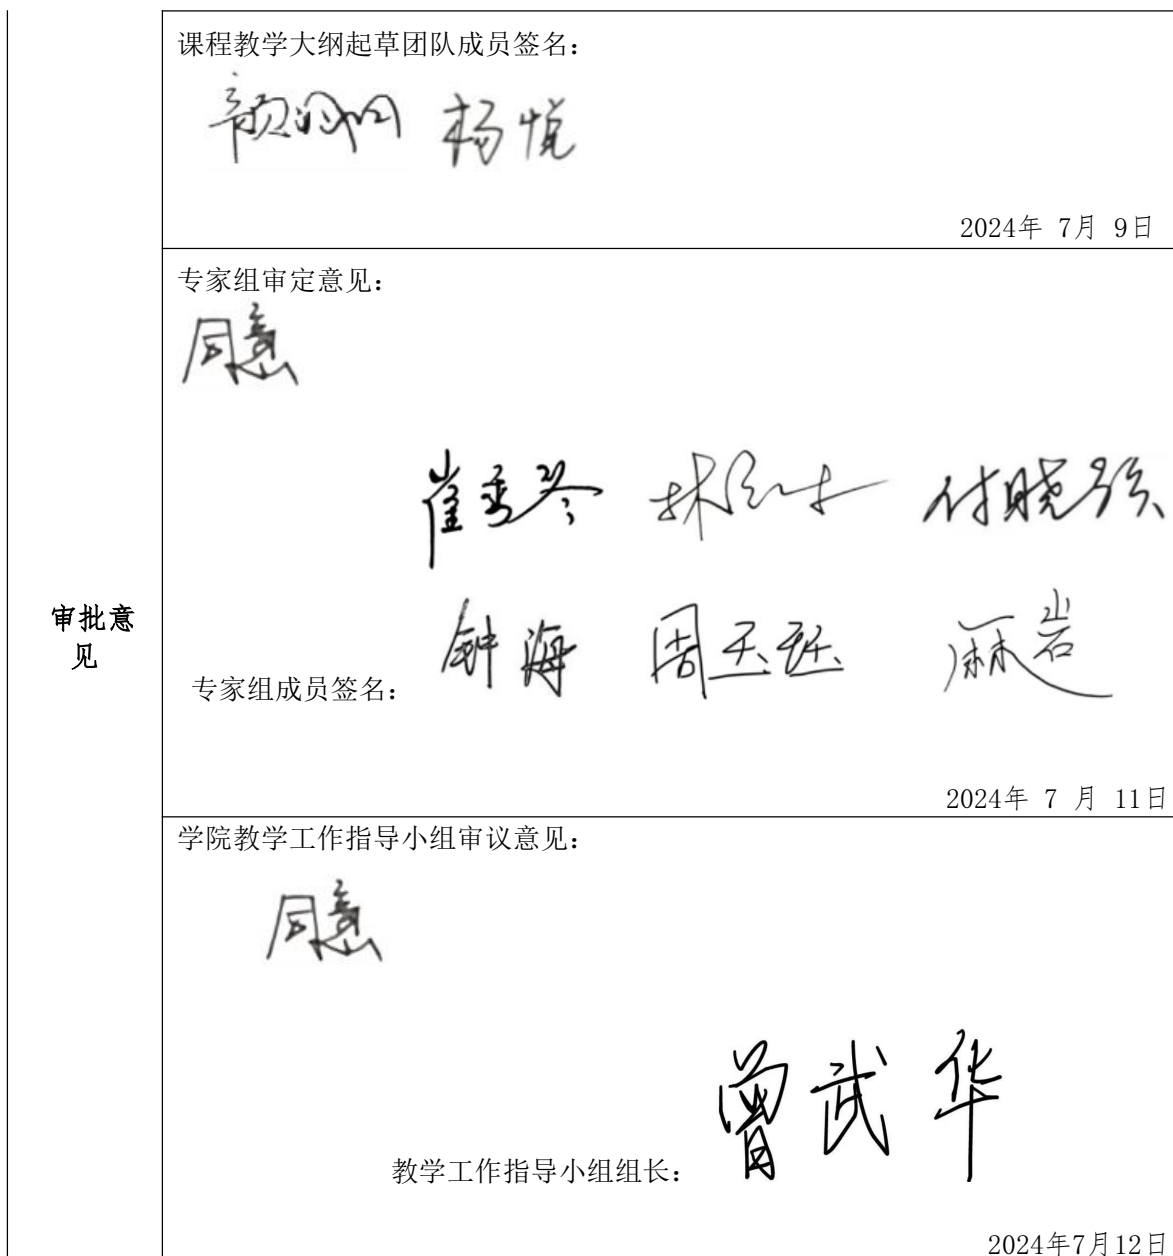 课程教学大纲起草团队成员签名：
杨悦
2024年 7月 9日
专家组审定意见：
同意
崔秀琴 付晓强
审批意
见
钟海 周玉珏 麻岩
专家组成员签名：
2024年 7 月 11日
学院教学工作指导小组审议意见：
同意
曾武华
教学工作指导小组组长：
2024年7月12日